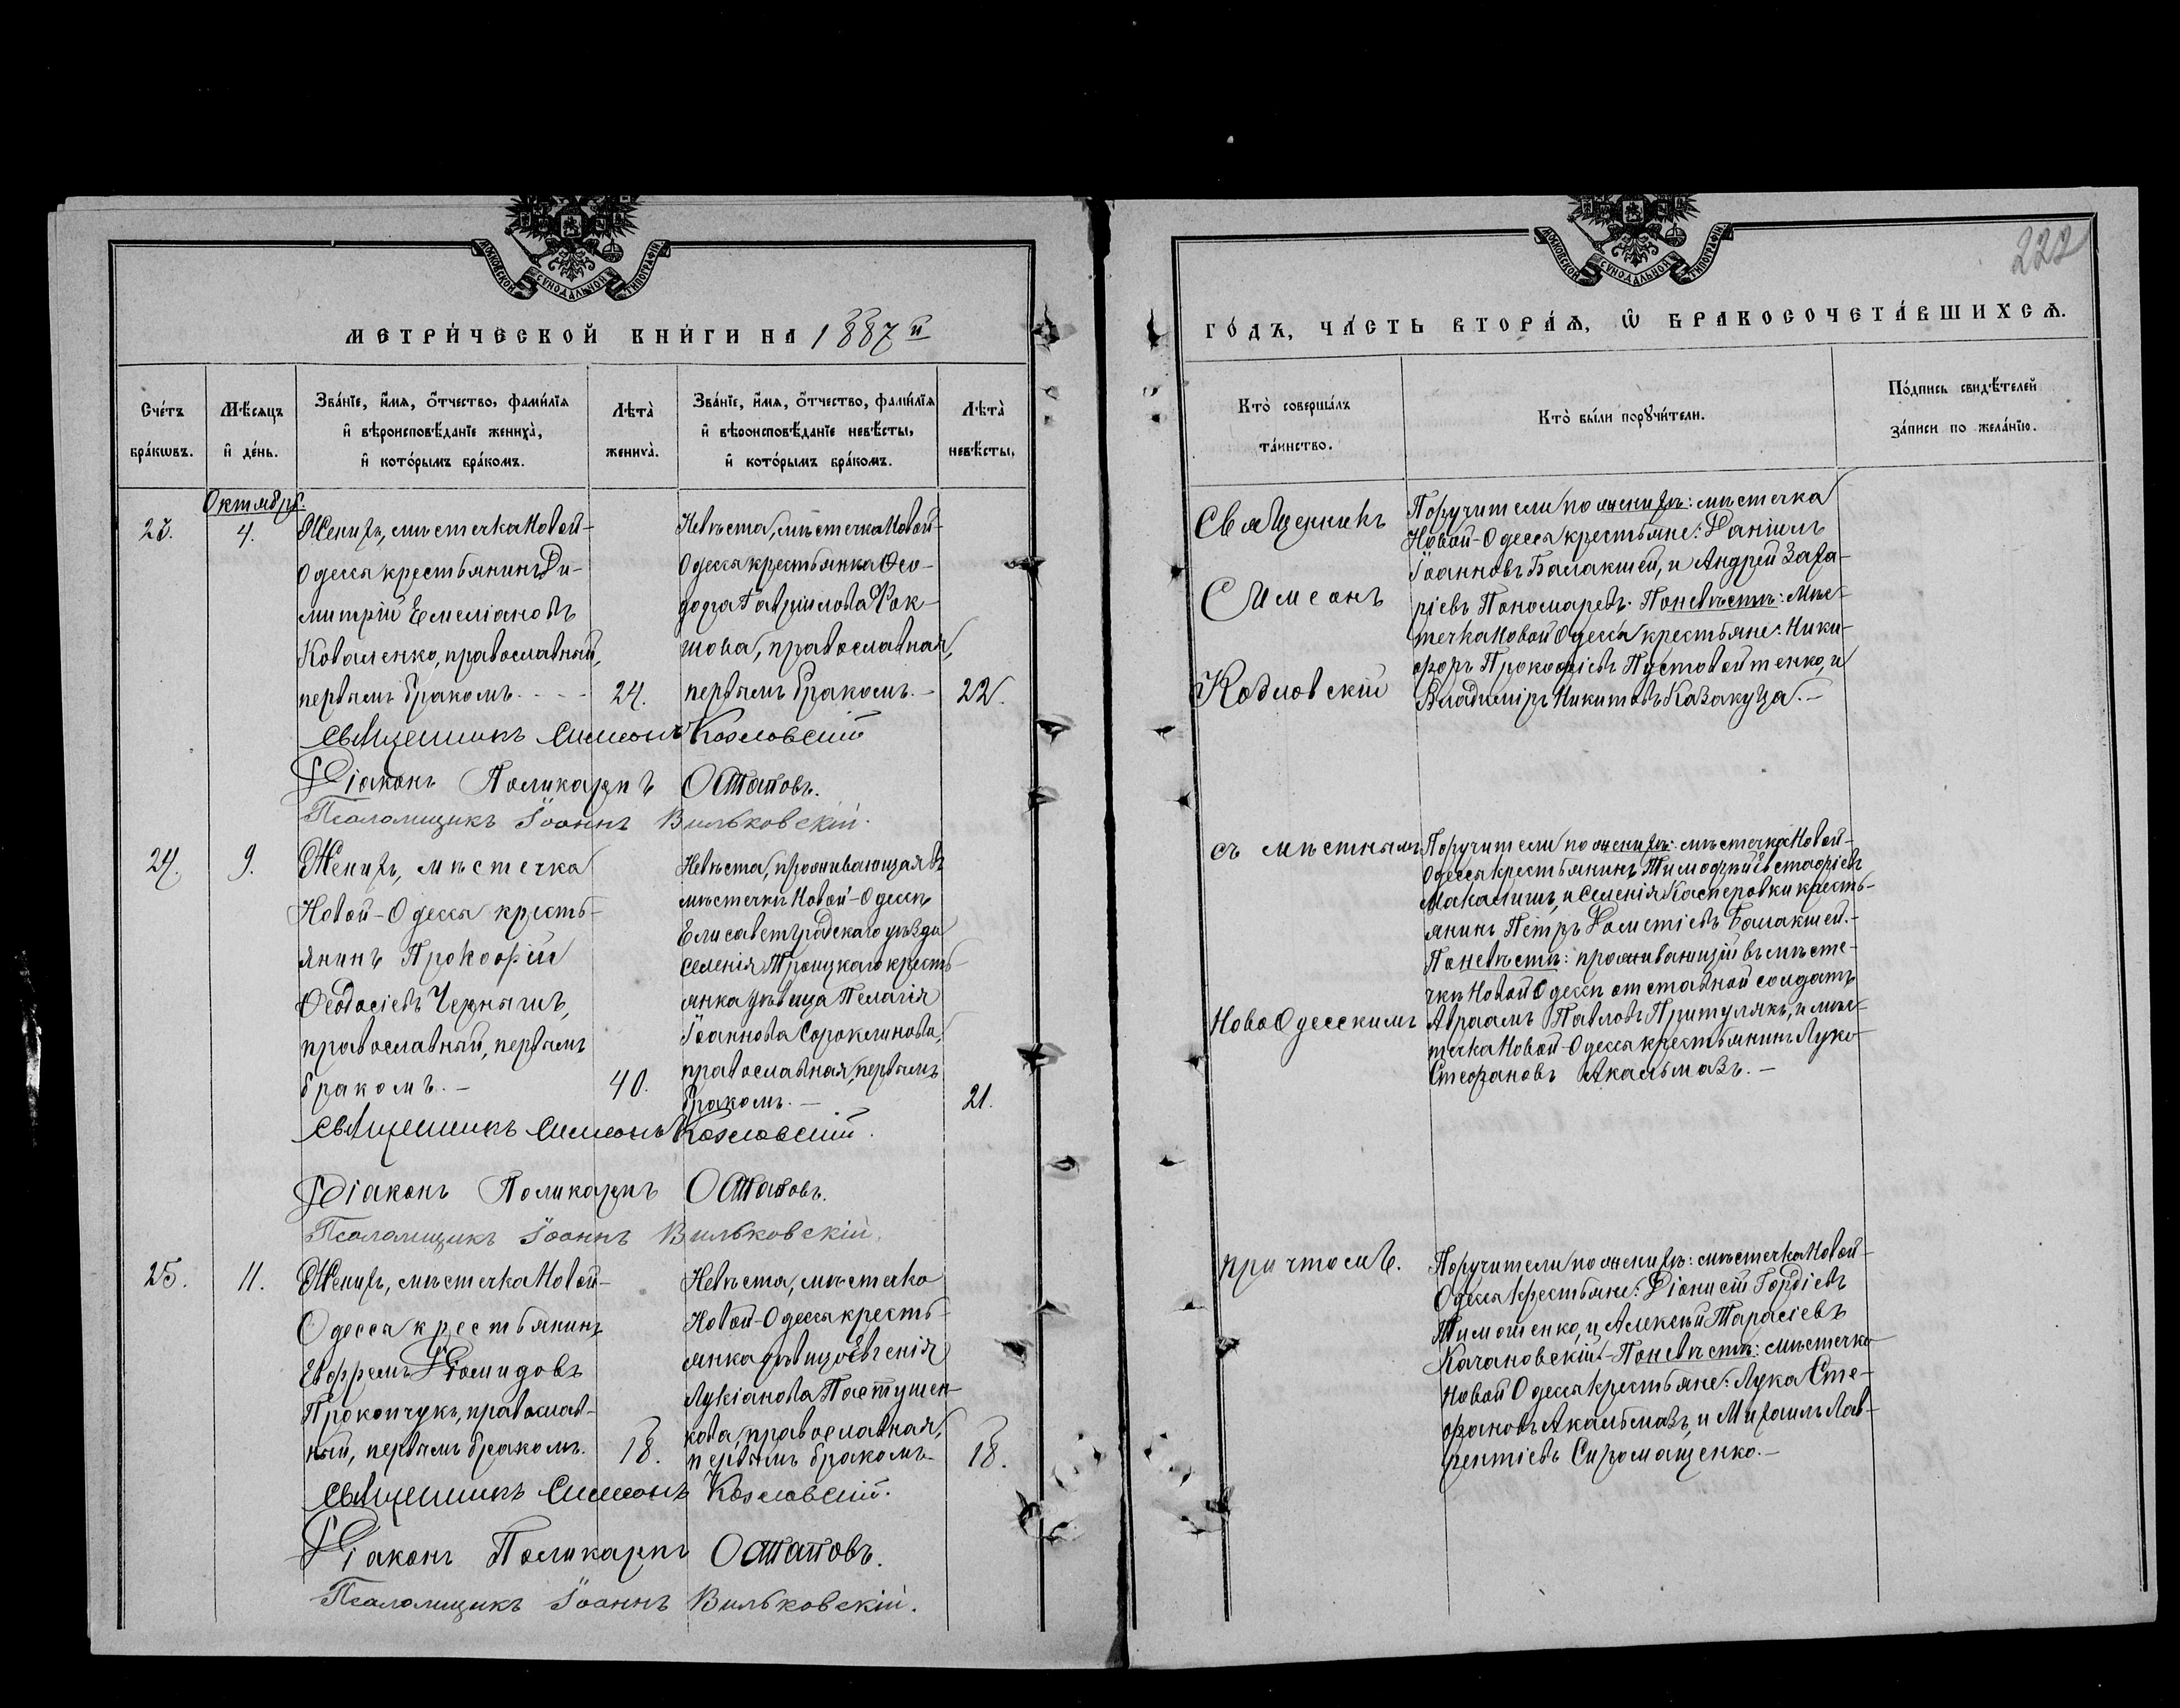 МОСКОВСКОЙ СѴНОДАЛЬНОЙ ТИПОГРАФІИ
МЕТРИ́ЧЕСКОЙ КНИ́ГИ НА 1887й
Сче́тъ бра́кѡвъ.
Мѣ́сяцъ и҆ де́нь.
Зва́нїе, и҆́мѧ, ѻ҆́тчество, фами́лїѧ
и҆ вѣроисповѣ́данїе жениха̀,
и҆ кото́рымъ бра́комъ.
Лѣта̀ жениха̀.
Зва́нїе, и҆́мѧ, ѻ҆́тчество, фами́лїѧ
и҆ вѣроисповѣ́данїе невѣ́сты,
и҆ кото́рымъ бра́комъ.
Лѣта̀ невѣ́сты.
Октябрь.
23.
4.
Женихъ, мѣстечка Новой-
Одессы крестьянинъ Ди-
митрій Емеліановъ
Коваленко, православный,
первымъ бракомъ.
24.
Невѣста, мѣстечка Новой-
Одессы крестьянка Ѳео-
дора Гавріилова Фок-
шова, православная,
первымъ бракомъ.-
22.
Священникъ Симеонъ Козловскій
Діаконъ Поликарпъ Остаповъ.
Псаломщикъ Іоаннъ Вильковскій.
24.
9.
Женихъ, мѣстечка
Новой-Одессы кресть-
янинъ Прокофій
Ѳеодосіевъ Чернышъ,
православный, первымъ
бракомъ.-
40.
Невѣста, проживающая въ
мѣстечкѣ Новой-Одессѣ
Елисаветградскаго уѣзда
селенія Троицкаго кресть-
янка дѣвица Пелагія
Іоаннова Сороклинова,
православная, первымъ
бракомъ.-
21.
Священникъ Симеонъ Козловскій.
Діаконъ Поликарпъ Остаповъ.
Псаломщикъ Іоаннъ Вильковскій.
25.
11.
Женихъ, мѣстечка Новой-
Одессы крестьянинъ
Евфремъ Діомидовъ
Прокопчукъ, православ-
ный, первымъ бракомъ.
18.
Невѣста, мѣстечка
Новой-Одессы кресть-
янка дѣвица Евгенія
Лукіанова Пастушен-
кова, православная,
первымъ бракомъ-
18.
Священникъ Симеонъ Козловскій.
Діаконъ Поликарпъ Остаповъ.
Псаломщикъ Іоаннъ Вильковскій.
222
МОСКОВСКОЙ СѴНОДАЛЬНОЙ ТИПОГРАФІИ
ГО́ДЪ, ЧА́СТЬ ВТОРА́Ѧ, Ѡ҆ БРАКОСОЧЕТА́ВШИХСѦ.
Кто̀ соверша́лъ
та́инство.
Кто̀ бы́ли порꙋчи́тели.
По́дпись свидѣ́телей
за́писи по жела́нїю.
Священникъ
Симеонъ
Козловскій
Поручители по женихѣ: мѣстечка
Новой-Одессы крестьяне: Даніилъ
Іоанновъ Балакшей, и Андрей Заха-
ріевъ Пономаревъ. По невѣстѣ: мѣс-
течка Новой Одессы крестьяне: Ники-
форъ Прокофіевъ Пустовойтенко, и
Владиміръ Никитовъ Казакуца.-
съ мѣстнымъ
НовоОдесскимъ
Поручители по женихѣ: мѣстечка Новой-
Одессы крестьянинъ Тимофей Евстафіевъ
и селенія Касперовки кресть-
янинъ Петръ Дометіевъ Балакшей.-
По невѣстѣ: проживающій въ мѣсте-
чкѣ Новой Одессѣ отставной солдатъ
Авраамъ Павловъ Притулякъ, и мѣс-
течка Новой-Одессы крестьянинъ Лука
Стефановъ Акальмазъ.-
причтомъ.
Поручители по женихѣ: мѣстечка Новой-
Одессы крестьяне: Діонисій Гордіевъ
Тимошенко, и Алексѣй Тарасіевъ
Качановскій.-По невѣстѣ: мѣстечка
Новой Одессы крестьяне: Лука Сте-
фановъ Акальмазъ, и Михаилъ Лав-
рентіевъ Сиромащенко.-